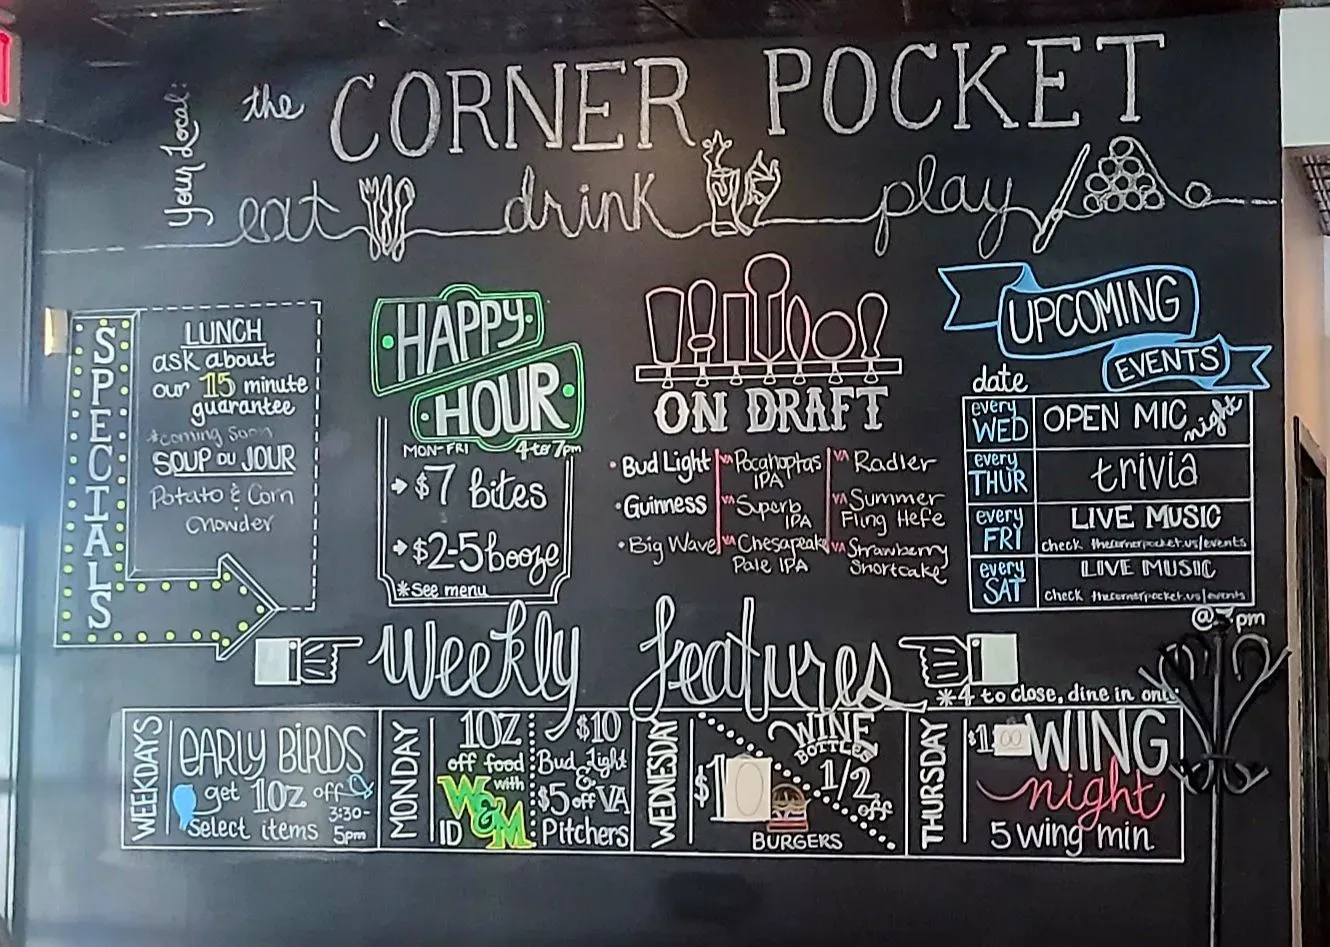 Your Local:
the CORNER POCKET
eat drink play
SPECIALS
LUNCH
ask about
our 15 minute
guarantee
*coming soon
SOUP DU JOUR
Potato & Corn
Chowder
HAPPY
HOUR
MON-FRI 4 to 7pm
$7 bites
$2-5 booze
*See menu
ON DRAFT
• Bud Light
• Guinness
• Big Wave
VA Pocahoptas
IPA
VA Superb
IPA
VA Chesapeake
Pale IPA
VA Radler
VA Summer
Fling Hefe
VA Strawberry
Shortcake
UPCOMING
EVENTS
date
every
WED
OPEN MIC night
every
THUR
trivia
every
FRI
LIVE MUSIC
check thecornerpocket.us/events
every
SAT
LIVE MUSIC
check thecornerpocket.us/events
pm
Weekly features
*4 to close, dine in only
WEEKDAYS
EARLY BIRDS
get 10% off
select items
3:30-
5pm
MONDAY
10%
off food
with
W&M
ID
$10
Bud Light
&
$5 off VA
Pitchers
WEDNESDAY
$10
BURGERS
WINE
BOTTLES
1/2
off
THURSDAY
$1.00 WING
night
5 wing min.